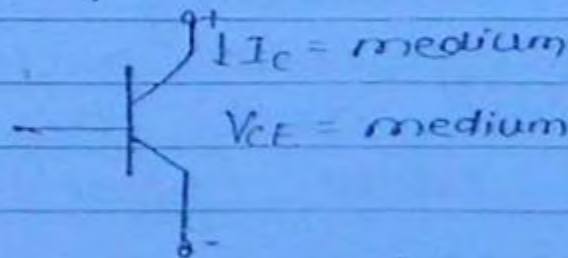 +
↓ I_C = medium
V_CE = medium
-